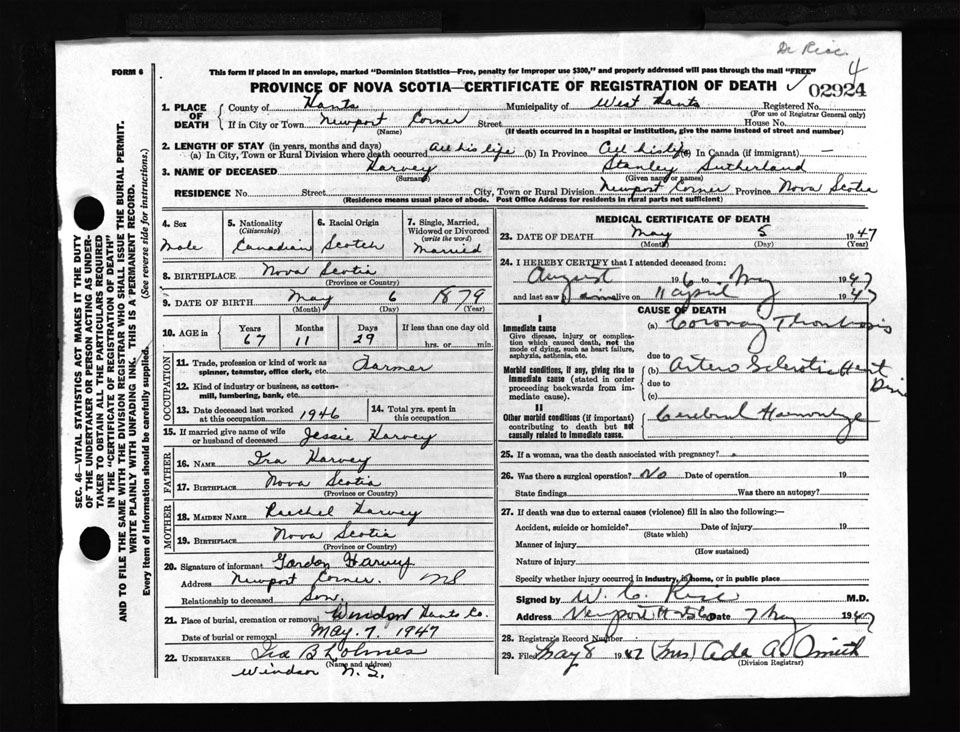 Dr Rice
4
FORM 6
This form if placed in an envelope, marked "Dominion Statistics—Free, penalty for improper use $300," and properly addressed will pass through the mail "FREE"
PROVINCE OF NOVA SCOTIA—CERTIFICATE OF REGISTRATION OF DEATH
02924
1. PLACE OF DEATH
County of Hants Municipality of West Hants Registered No.
(For use of Registrar General only)
If in City or Town Newport Corner Street House No.
(Name) (If death occurred in a hospital or institution, give the name instead of street and number)
2. LENGTH OF STAY (in years, months and days)
(a) In City, Town or Rural Division where death occurred All his life (b) In Province All his life (c) In Canada (if immigrant) —
3. NAME OF DECEASED Harvey Stanley Sutherland
(Surname) (Given name or names)
RESIDENCE No. Street City, Town or Rural Division Newport Corner Province Nova Scotia
(Residence means usual place of abode. Post Office Address for residents in rural parts not sufficient)
SEC. 46—VITAL STATISTICS ACT MAKES IT THE DUTY
OF THE UNDERTAKER OR PERSON ACTING AS UNDER-
TAKER TO OBTAIN ALL THE PARTICULARS REQUIRED
IN THE "CERTIFICATE OF REGISTRATION OF DEATH"
AND TO FILE THE SAME WITH THE DIVISION REGISTRAR WHO SHALL ISSUE THE BURIAL PERMIT.
WRITE PLAINLY WITH UNFADING INK. THIS IS A PERMANENT RECORD.
Every item of information should be carefully supplied. (See reverse side for instructions.)
4. Sex
Male
5. Nationality
(Citizenship)
Canadian
6. Racial Origin
Scotch
7. Single, Married, Widowed or Divorced
(write the word)
Married
8. BIRTHPLACE Nova Scotia
(Province or Country)
9. DATE OF BIRTH May 6 1879
(Month) (Day) (Year)
10. AGE in
Years Months Days If less than one day old
67 11 29 hrs. or min.
OCCUPATION
11. Trade, profession or kind of work as spinner, teamster, office clerk, etc. Farmer
12. Kind of industry or business, as cotton-mill, lumbering, bank, etc.
13. Date deceased last worked at this occupation 1946
14. Total yrs. spent in this occupation
15. If married give name of wife or husband of deceased Jessie Harvey
FATHER
16. NAME Ira Harvey
17. BIRTHPLACE Nova Scotia
(Province or Country)
MOTHER
18. MAIDEN NAME Reechel Harvey
19. BIRTHPLACE Nova Scotia
(Province or Country)
20. Signature of informant Gordon Harvey
Address Newport Corner. NS
Relationship to deceased Son.
21. Place of burial, cremation or removal Windsor Hants Co.
Date of burial or removal May. 7. 1947
22. UNDERTAKER Ira B Lohnes
(Name and address)
Windsor N.S.
MEDICAL CERTIFICATE OF DEATH
23. DATE OF DEATH May 5 1947
(Month) (Day) (Year)
24. I HEREBY CERTIFY that I attended deceased from:
August 1946 to May 1947
and last saw him alive on 11 April 1947
CAUSE OF DEATH
I
Immediate cause
Give disease, injury or complication which caused death, not the mode of dying, such as heart failure, asphyxia, asthenia, etc.
(a) Coronary Thrombosis
due to
Morbid conditions, if any, giving rise to immediate cause (stated in order proceeding backwards from immediate cause).
(b) Arterio Sclerotic Heart
due to
(c)
II
Other morbid conditions (if important) contributing to death but not causally related to immediate cause.
Cerebral Haemorrhage
25. If a woman, was the death associated with pregnancy?
26. Was there a surgical operation? No Date of operation 19
State findings Was there an autopsy?
27. If death was due to external causes (violence) fill in also the following:—
Accident, suicide or homicide? Date of injury 19
(State which)
Manner of injury
(How sustained)
Nature of injury
Specify whether injury occurred in industry, in home, or in public place
Signed by W. C. Rice M.D.
Address Newport Hants Co Date 7 May 1947
28. Registrar's Record Number
29. Filed May 8 1947 (Mrs) Ada A. Smith
(Division Registrar)